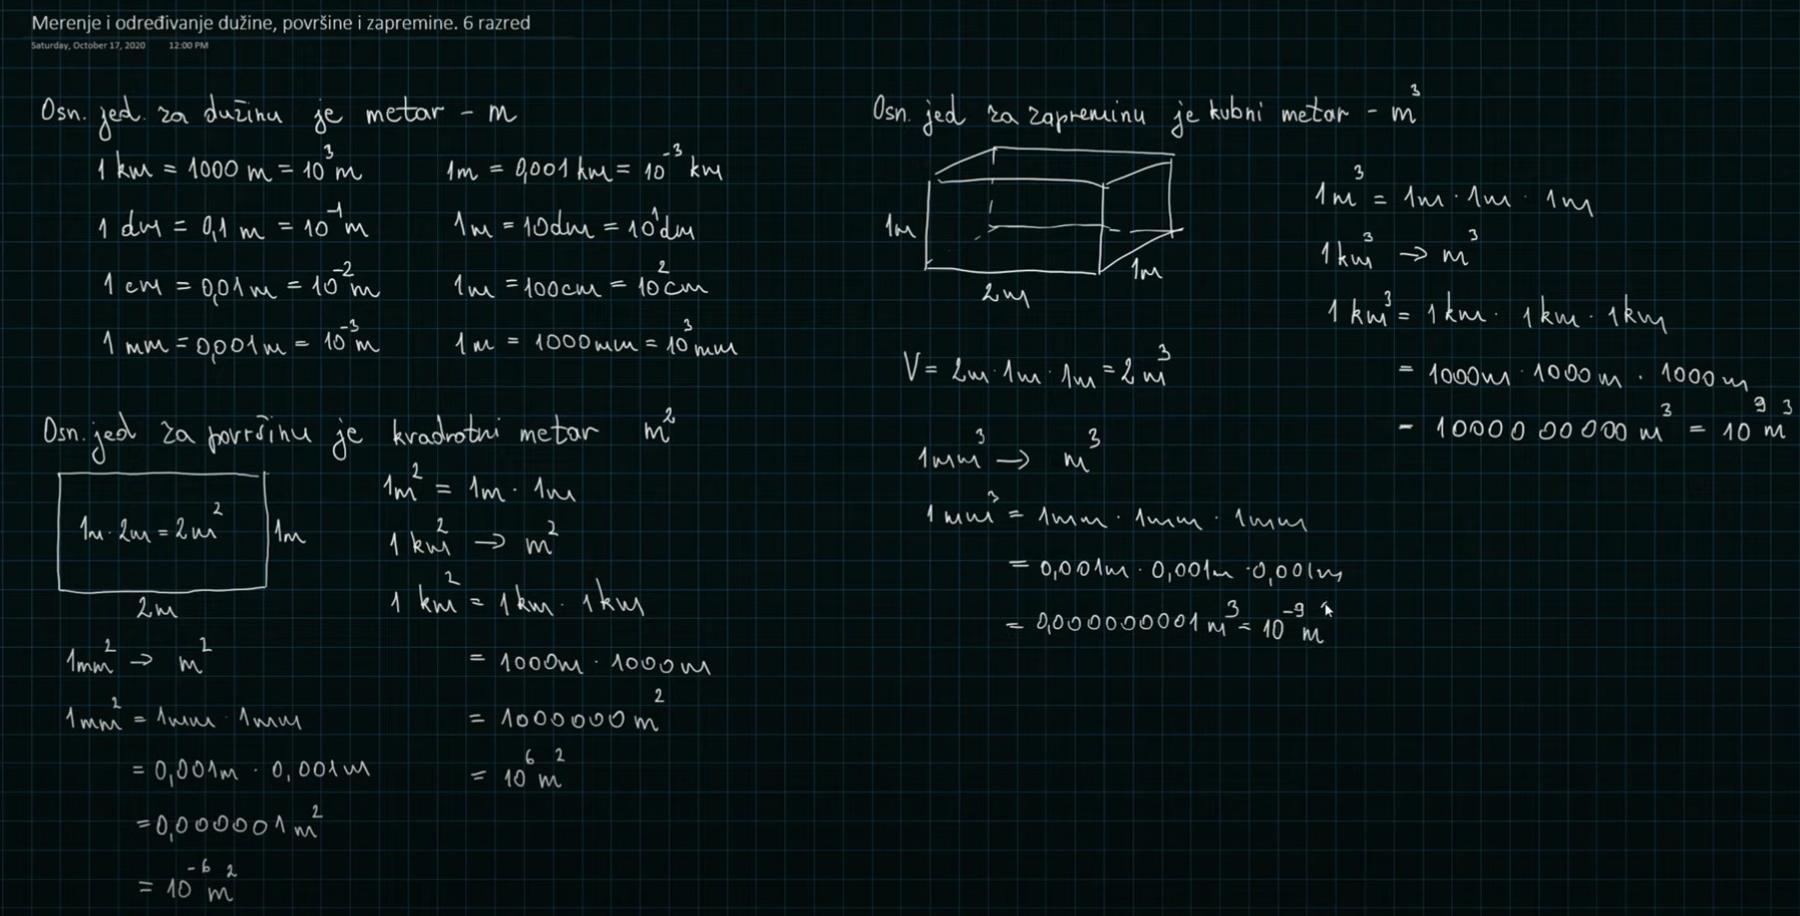 Merenje i određivanje dužine, površine i zapremine. 6 razred
Saturday, October 17, 2020 12:00 PM
Osn. jed. za dužinu je metar - m
1 km = 1000 m = 10³ m 1m = 0,001 km = 10⁻³ km
1 dm = 0,1 m = 10⁻¹ m 1m = 10dm = 10¹ dm
1 cm = 0,01 m = 10⁻² m 1m = 100cm = 10² cm
1 mm = 0,001 m = 10⁻³ m 1m = 1000mm = 10³ mm
Osn. jed za površinu je kvadrotni metar m²
1m · 2m = 2m²
1m
2m
1m² = 1m · 1m
1 km² → m²
1 km² = 1km · 1km
= 1000m · 1000m
= 1000000 m²
= 10⁶ m²
1mm² → m²
1mm² = 1mm · 1mm
= 0,001m · 0,001m
= 0,000001 m²
= 10⁻⁶ m²
Osn. jed za zapreminu je kubni metar - m³
1m
2m
1m
V = 2m · 1m · 1m = 2 m³
1m³ = 1m · 1m · 1m
1km³ → m³
1 km³ = 1km · 1km · 1km
= 1000m · 1000m · 1000m
= 1000000000 m³ = 10⁹ m³
1mm³ → m³
1mm³ = 1mm · 1mm · 1mm
= 0,001m · 0,001m · 0,001m
= 0,000000001 m³ = 10⁻⁹ m